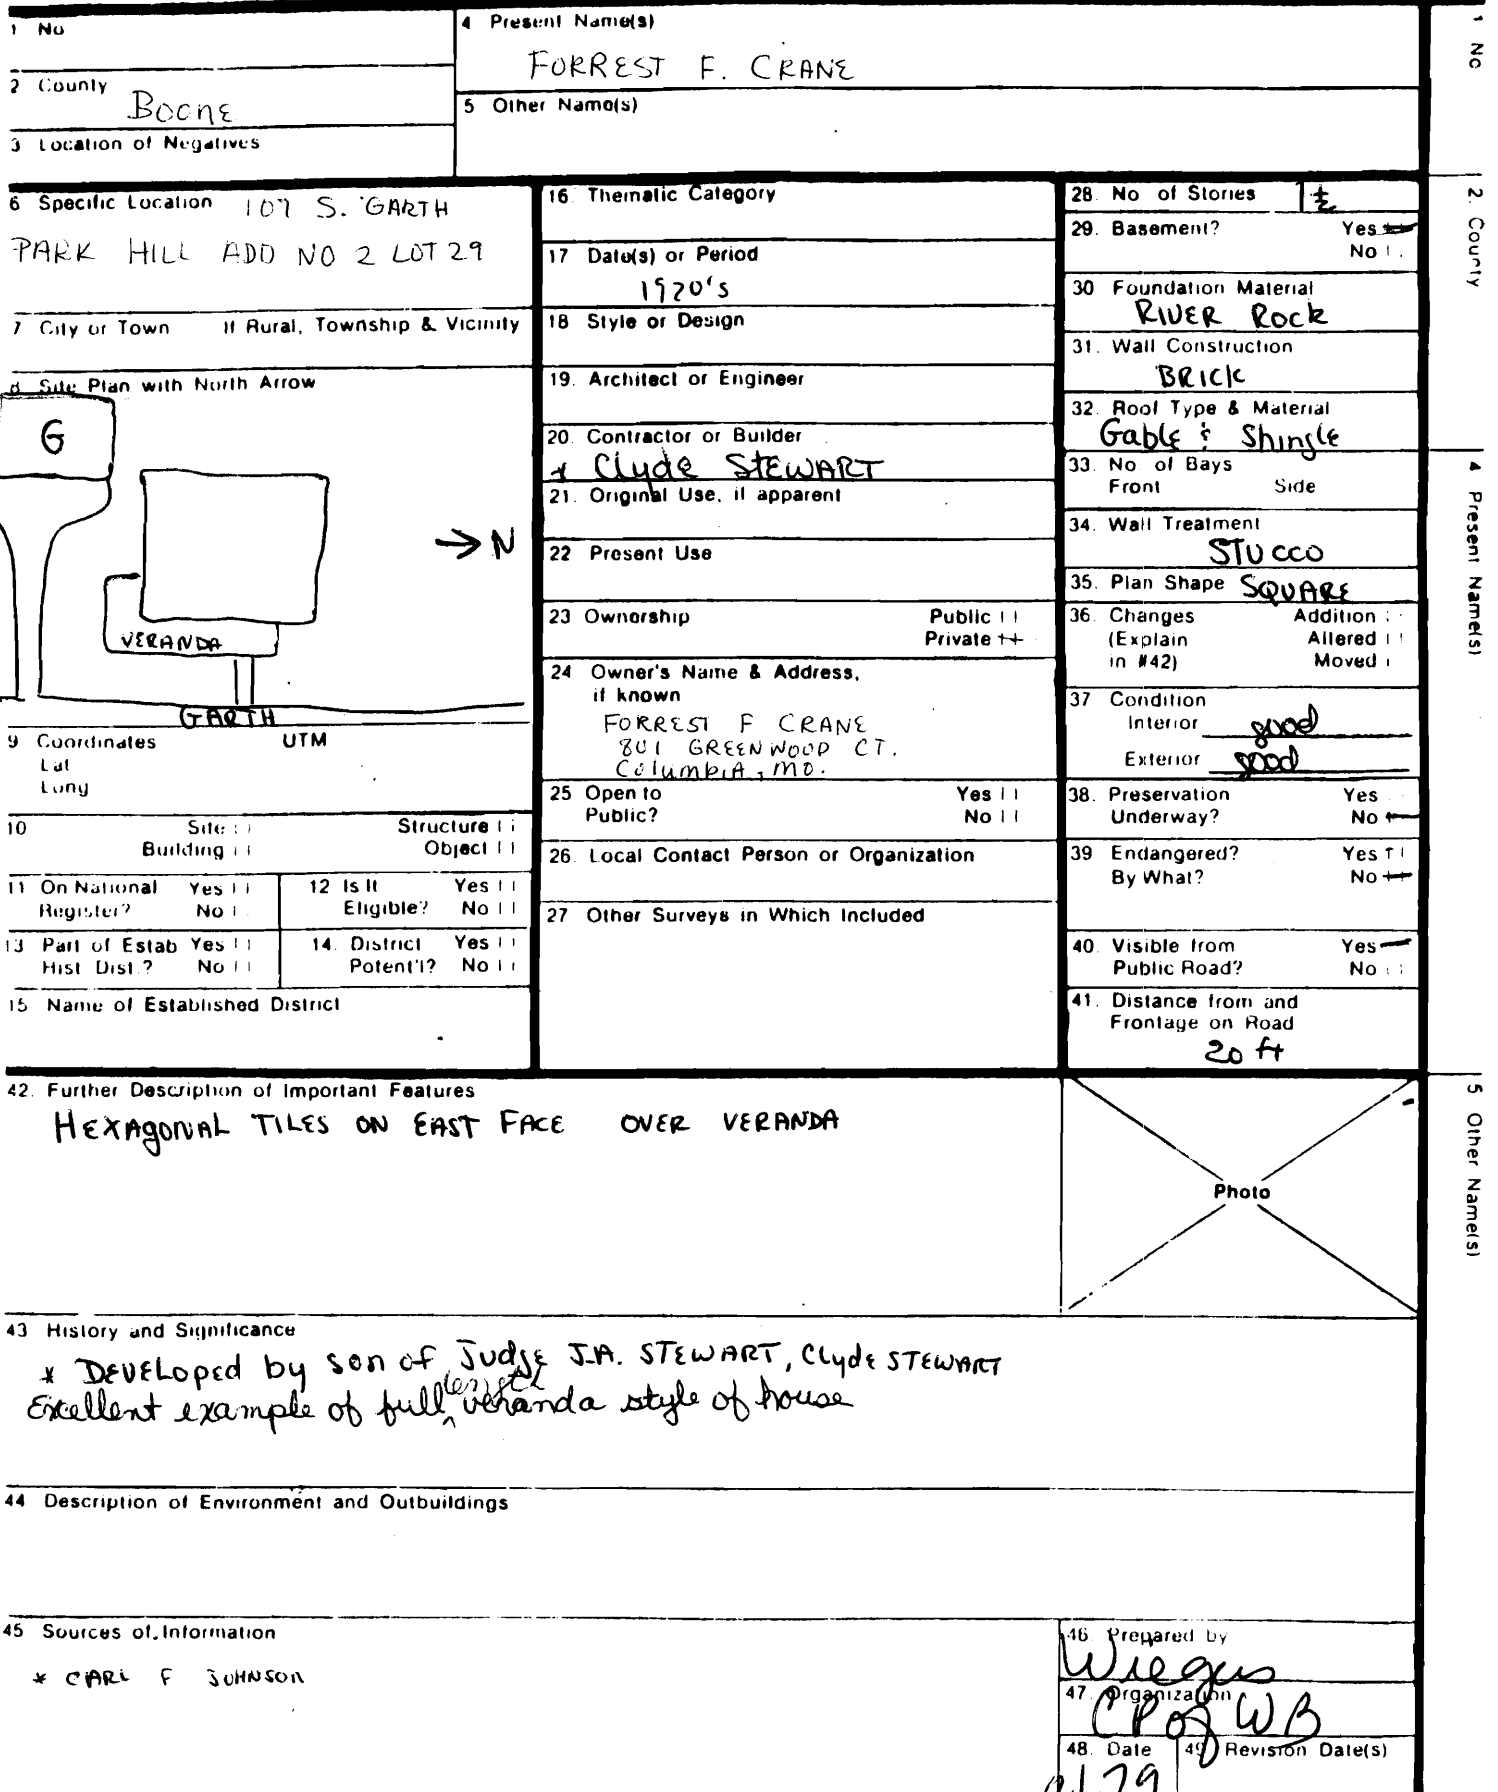 1 No
4 Present Name(s)
FORREST F. CRANE
2 County
BOONE
5 Other Name(s)
3 Location of Negatives
6 Specific Location 107 S. GARTH
PARK HILL ADD NO 2 LOT 29
7 City or Town If Rural, Township & Vicinity
8 Site Plan with North Arrow
G
→ N
VERANDA
GARTH
9 Coordinates UTM
Lat
Long
10 Site Structure
Building Object
11 On National Register? Yes No
12 Is It Eligible? Yes No
13 Part of Estab Hist Dist.? Yes No
14. District Potent'l? Yes No
15 Name of Established District
16. Thematic Category
17 Date(s) or Period
1920's
18 Style or Design
19. Architect or Engineer
20. Contractor or Builder
* Clyde STEWART
21. Original Use, if apparent
22 Present Use
23 Ownership Public
Private
24 Owner's Name & Address,
if known
FORREST F CRANE
801 GREENWOOD CT.
Columbia, MO.
25 Open to Yes
Public? No
26. Local Contact Person or Organization
27 Other Surveys in Which Included
28. No of Stories 1½
29. Basement? Yes
No
30 Foundation Material
RIVER ROCK
31. Wall Construction
BRICK
32. Roof Type & Material
Gable & Shingle
33. No of Bays
Front Side
34. Wall Treatment
STUCCO
35. Plan Shape SQUARE
36. Changes Addition
(Explain Altered
in #42) Moved
37 Condition
Interior good
Exterior good
38. Preservation Yes
Underway? No
39 Endangered? Yes
By What? No
40. Visible from Yes
Public Road? No
41. Distance from and
Frontage on Road
20 ft
42. Further Description of Important Features
HEXAgONAL TILES ON EAST FACE OVER VERANDA
Photo
43 History and Significance
* DEVELOPED by son of Judge J.A. STEWART, Clyde STEWART
Excellent example of full length veranda style of house
44 Description of Environment and Outbuildings
45 Sources of Information
* CARL F JOHNSON
46. Prepared by
47. Organization
CP of WB
48. Date 49. Revision Date(s)
79
1 No
2. County
4 Present Name(s)
5 Other Name(s)